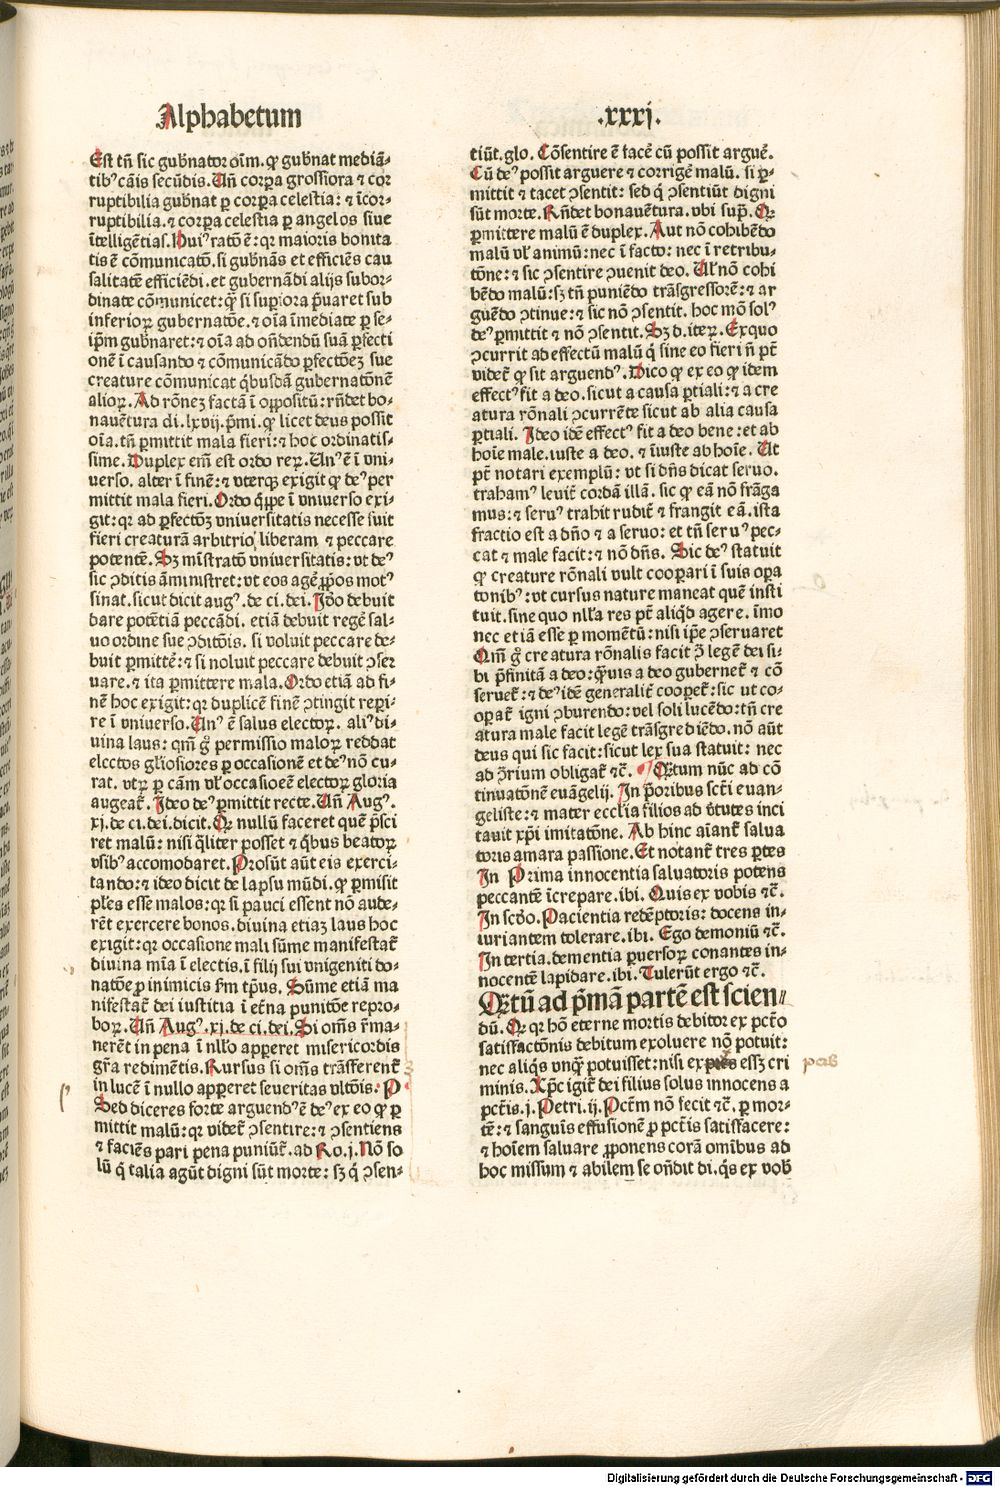 Alphabetum
.xxxj.
Est tñ sic gub̃nator oĩm. qͥ gub̃nat mediã⸗
tibꝰ cãis secũdis. Uñ corꝑa grossiora ⁊ cor
ruptibilia gub̃nat ꝑ corꝑa celestia: ⁊ ĩcor⸗
ruptibilia. ⁊ corꝑa celestia ꝑ angelos siue
ĩtelligẽtias. Huiꝰ ratõ ẽ: qꝛ maioris bonita
tis ẽ cõmunicatõ. si gubñãs et efficiẽs cau
salitatẽ efficiẽdi. et gubernãdi alijs subor⸗
dinate cõmunicet: qͥ si suꝑiora p̃uaret sub
inferioꝝ gubernatõe. ⁊ oĩa ĩmediate ꝑ se⸗
ip̃m gub̃naret: ⁊ oĩa ad oñdendũ suã ꝑfecti
onẽ ĩ causando ⁊ cõmunicãdo ꝑfectõeʒ sue
creature cõmunicat q̃busdã gubernatõnẽ
alioꝝ. Ad rõneʒ factã ĩ oppositũ: rñdet bo⸗
nauẽtura di. lxvij. p̃mi. ꝙ licet deus possit
oĩa. tñ ꝑmittit mala fieri: ⁊ hoc ordinatis⸗
sime. Duplex em̃ est ordo reꝝ. Unꝰ ẽ ĩ vni⸗
uerso. alter ĩ finẽ: ⁊ vterqꝫ exigit ꝙ deꝰ per
mittit mala fieri. Ordo q̃ppe ĩ vniuerso exi⸗
git: qꝛ ad ꝑfectõʒ vniuersitatis necesse fuit
fieri creaturã arbitrio liberam ⁊ peccare
potentẽ. Sʒ mĩstratõ vniuersitatis: vt deꝰ
sic ꝯditis ãministret: vt eos agẽ ꝓprios motꝰ
sinat. sicut dicit augꝰ. de ci. dei. Iõo debuit
dare potẽtiã peccãdi. etiã debuit regẽ sal⸗
uo ordine sue ꝯditõis. si voluit peccare de⸗
buit ꝑmittẽ: ⁊ si noluit peccare debuit ꝯser
uare. ⁊ ita ꝑmittere mala. Ordo etiã ad fi⸗
nẽ hoc exigit: qꝛ duplicẽ finẽ ꝯtingit reꝑi⸗
re ĩ vniuerso. Unꝰ ẽ salus electoꝝ. aliꝰ di⸗
uina laus: qm̃ g̊ permissio maloꝝ reddat
electos gl̃iosiores ꝑ occasionẽ et deꝰ nõ cu⸗
rat. vtꝝ ꝑ cãm vl̃ occasioeẽ electoꝝ gloria
augeat̃. Ideo deꝰ ꝑmittit recte. Uñ Augꝰ.
xj. de ci. dei. dicit. Qꝛ nullũ faceret quẽ p̃sci
ret malũ: nisi q̃liter posset ⁊ q̃bus beatoꝝ
vsibꝰ accomodaret. Prosũt aũt eis exerci⸗
tando: ⁊ ideo dicit de lapsu mũdi. ꝙ ꝑmisit
pl̃es esse malos: qꝛ si pauci essent nõ aude⸗
rẽt exercere bonos. diuina etiaʒ laus hoc
exigit: qꝛ occasione mali sũme manifestat̃
diuina mĩa ĩ electis. ĩ filij sui vnigeniti do⸗
natõe ꝓ inimicis ẽm tp̃us. Sũme etiã ma
nifestat̃ dei iustitia ĩ et̃na punitõe repro⸗
boꝝ. Uñ Augꝰ. xj. de ci. dei. Si om̃s r̃ma⸗
nerẽt in pena ĩ nll̃o apꝑeret misericordis
gr̃a redimẽtis. Rursus si om̃s trãsferent̃
in lucẽ ĩ nullo apꝑeret seueritas vltõis. P
Sed diceres forte arguendꝰ ẽ deꝰ ex eo ꝙ ꝑ
mittit malũ: qꝛ videt̃ ꝯsentire: ⁊ ꝯsentiens
⁊ faciẽs pari pena puniũt̃. ad Ro. j. Nõ so
lũ q̃ talia agũt digni sũt morte: sʒ q̃ ꝯsen⸗
tiũt. glo. Cõsentire ẽ tacẽ cũ possit arguẽ.
Cũ deꝰ possit arguere ⁊ corrigẽ malũ. si ꝑ⸗
mittit ⁊ tacet ꝯsentit: sed q̃ ꝯsentiũt digni
sũt morte. Rñdet bonauẽtura. vbi sup̃. Qꝛ
ꝑmittere malũ ẽ duplex. Aut nõ cohibẽdo
malũ vl̃ animũ: nec ĩ facto: nec ĩ retribu⸗
tõne: ⁊ sic ꝯsentire ꝯuenit deo. Ul̃ nõ cohi
bẽdo malũ: sʒ tñ puniẽdo trãsgressorẽ: ⁊ ar
guẽdo ꝯtinue: ⁊ sic nõ ꝯsentit. hoc mõ solꝰ
deꝰ ꝑmittit ⁊ nõ ꝯsentit. Sʒ d. iteꝝ. Exquo
ꝯcurrit ad effectũ malũ q̃ sine eo fieri ñ pt̃
videt̃ ꝙ sit arguendꝰ. Dico ꝙ ex eo ꝙ idem
effectꝰ fit a deo. sicut a causa ꝑtiali: ⁊ a cre
atura rõnali ꝯcurrẽte sicut ab alia causa
ꝑtiali. Ideo idẽ effectꝰ fit a deo bene: et ab
hoĩe male. iuste a deo. ⁊ ĩiuste ab hoĩe. Ut
pt̃ notari exemplũ: vt si dñs dicat seruo.
trahamꝰ leuit̃ cordã illã. sic ꝙ eã nõ frãga
mus: ⁊ seruꝰ trahit rudit̃ ⁊ frangit eã. ista
fractio est a dño ⁊ a seruo: et tñ seruꝰ pec⸗
cat ⁊ male facit: ⁊ nõ dñs. Sic deꝰ statuit
ꝙ creature rõnali vult cooꝑari ĩ suis oꝑa
tonibꝰ: vt cursus nature maneat quẽ insti
tuit. sine quo nll̃a res pt̃ aliq̃d agere. ĩmo
nec etiã esse ꝑ momẽtũ: nisi ip̃e ꝯseruaret
Qm̃ g̊ creatura rõnalis facit ꝯ̃ legẽ dei si⸗
bi p̃finitã a deo: q̃uis a deo gubernet̃ ⁊ cõ
seruet̃: ⁊ deꝰ idẽ generalit̃ cooꝑet̃: sic ut co⸗
oꝑat̃ igni ꝯburendo: vel soli lucẽdo: tñ cre
atura male facit legẽ trãsgrediẽdo. nõ aũt
deus qui sic facit: sicut lex sua statuit: nec
ad ꝯ̃rium obligat̃ ⁊c̃. Qꝛtum nũc ad cõ
tinuatõnẽ euãgelij. In p̃oribus sct̃i euan⸗
geliste: ⁊ mater ecclia filios ad v̓tutes inci
tauit xp̃i imitatõne. Ab hinc aĩant̃ salua
toris amara passione. Et notant̃ tres ꝑtes
In Prima innocentia saluatoris potens
peccantẽ ĩcrepare. ibi. Quis ex vobis ⁊c̃.
In scd̃o. Pacientia redẽptoris: docens in⸗
iuriantem tolerare. ibi. Ego demoniũ ⁊c̃.
In tertia. dementia ꝑuersoꝝ conantes in⸗
nocentẽ lapidare. ibi. Tulerũt ergo ⁊c̃.
Qꝛtũ ad p̃mã partẽ est scien⸗
dũ. Qꝛ qꝛ hõ eterne mortis debitor ex pct̃o
satisfactõnis debitum exoluere nõ potuit:
nec aliq̃s vnqͣ potuisset: nisi ex essʒ cri
minis. Xp̃c igit̃ dei filius solus innocens a
pct̃is. j. Petri. ij. Pct̃m nõ fecit ⁊c̃. ꝑ mor⸗
tẽ: ⁊ sanguĩs effusionẽ ꝓ pct̃is satisfacere:
⁊ hoĩem saluare ꝓponens corã omĩbus ad
hoc missum ⁊ abilem se oñdit di. q̃s ex vob̃
Digitalisierung gefördert durch die Deutsche Forschungsgemeinschaft - DFG